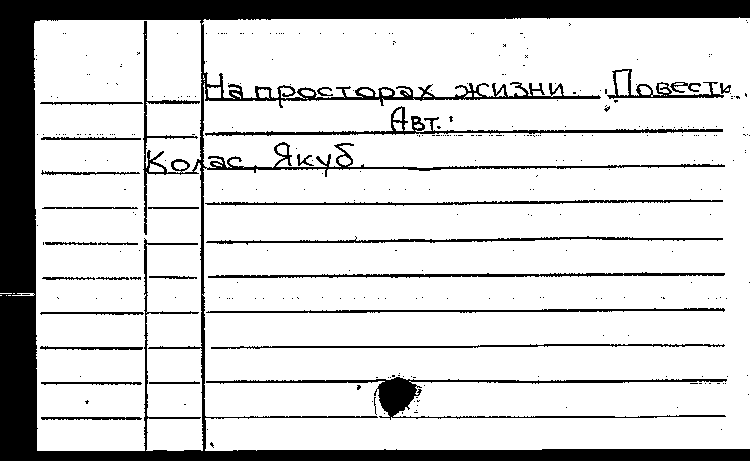 На просторах жизни. Повести.
Авт.:
Колас, Якуб.